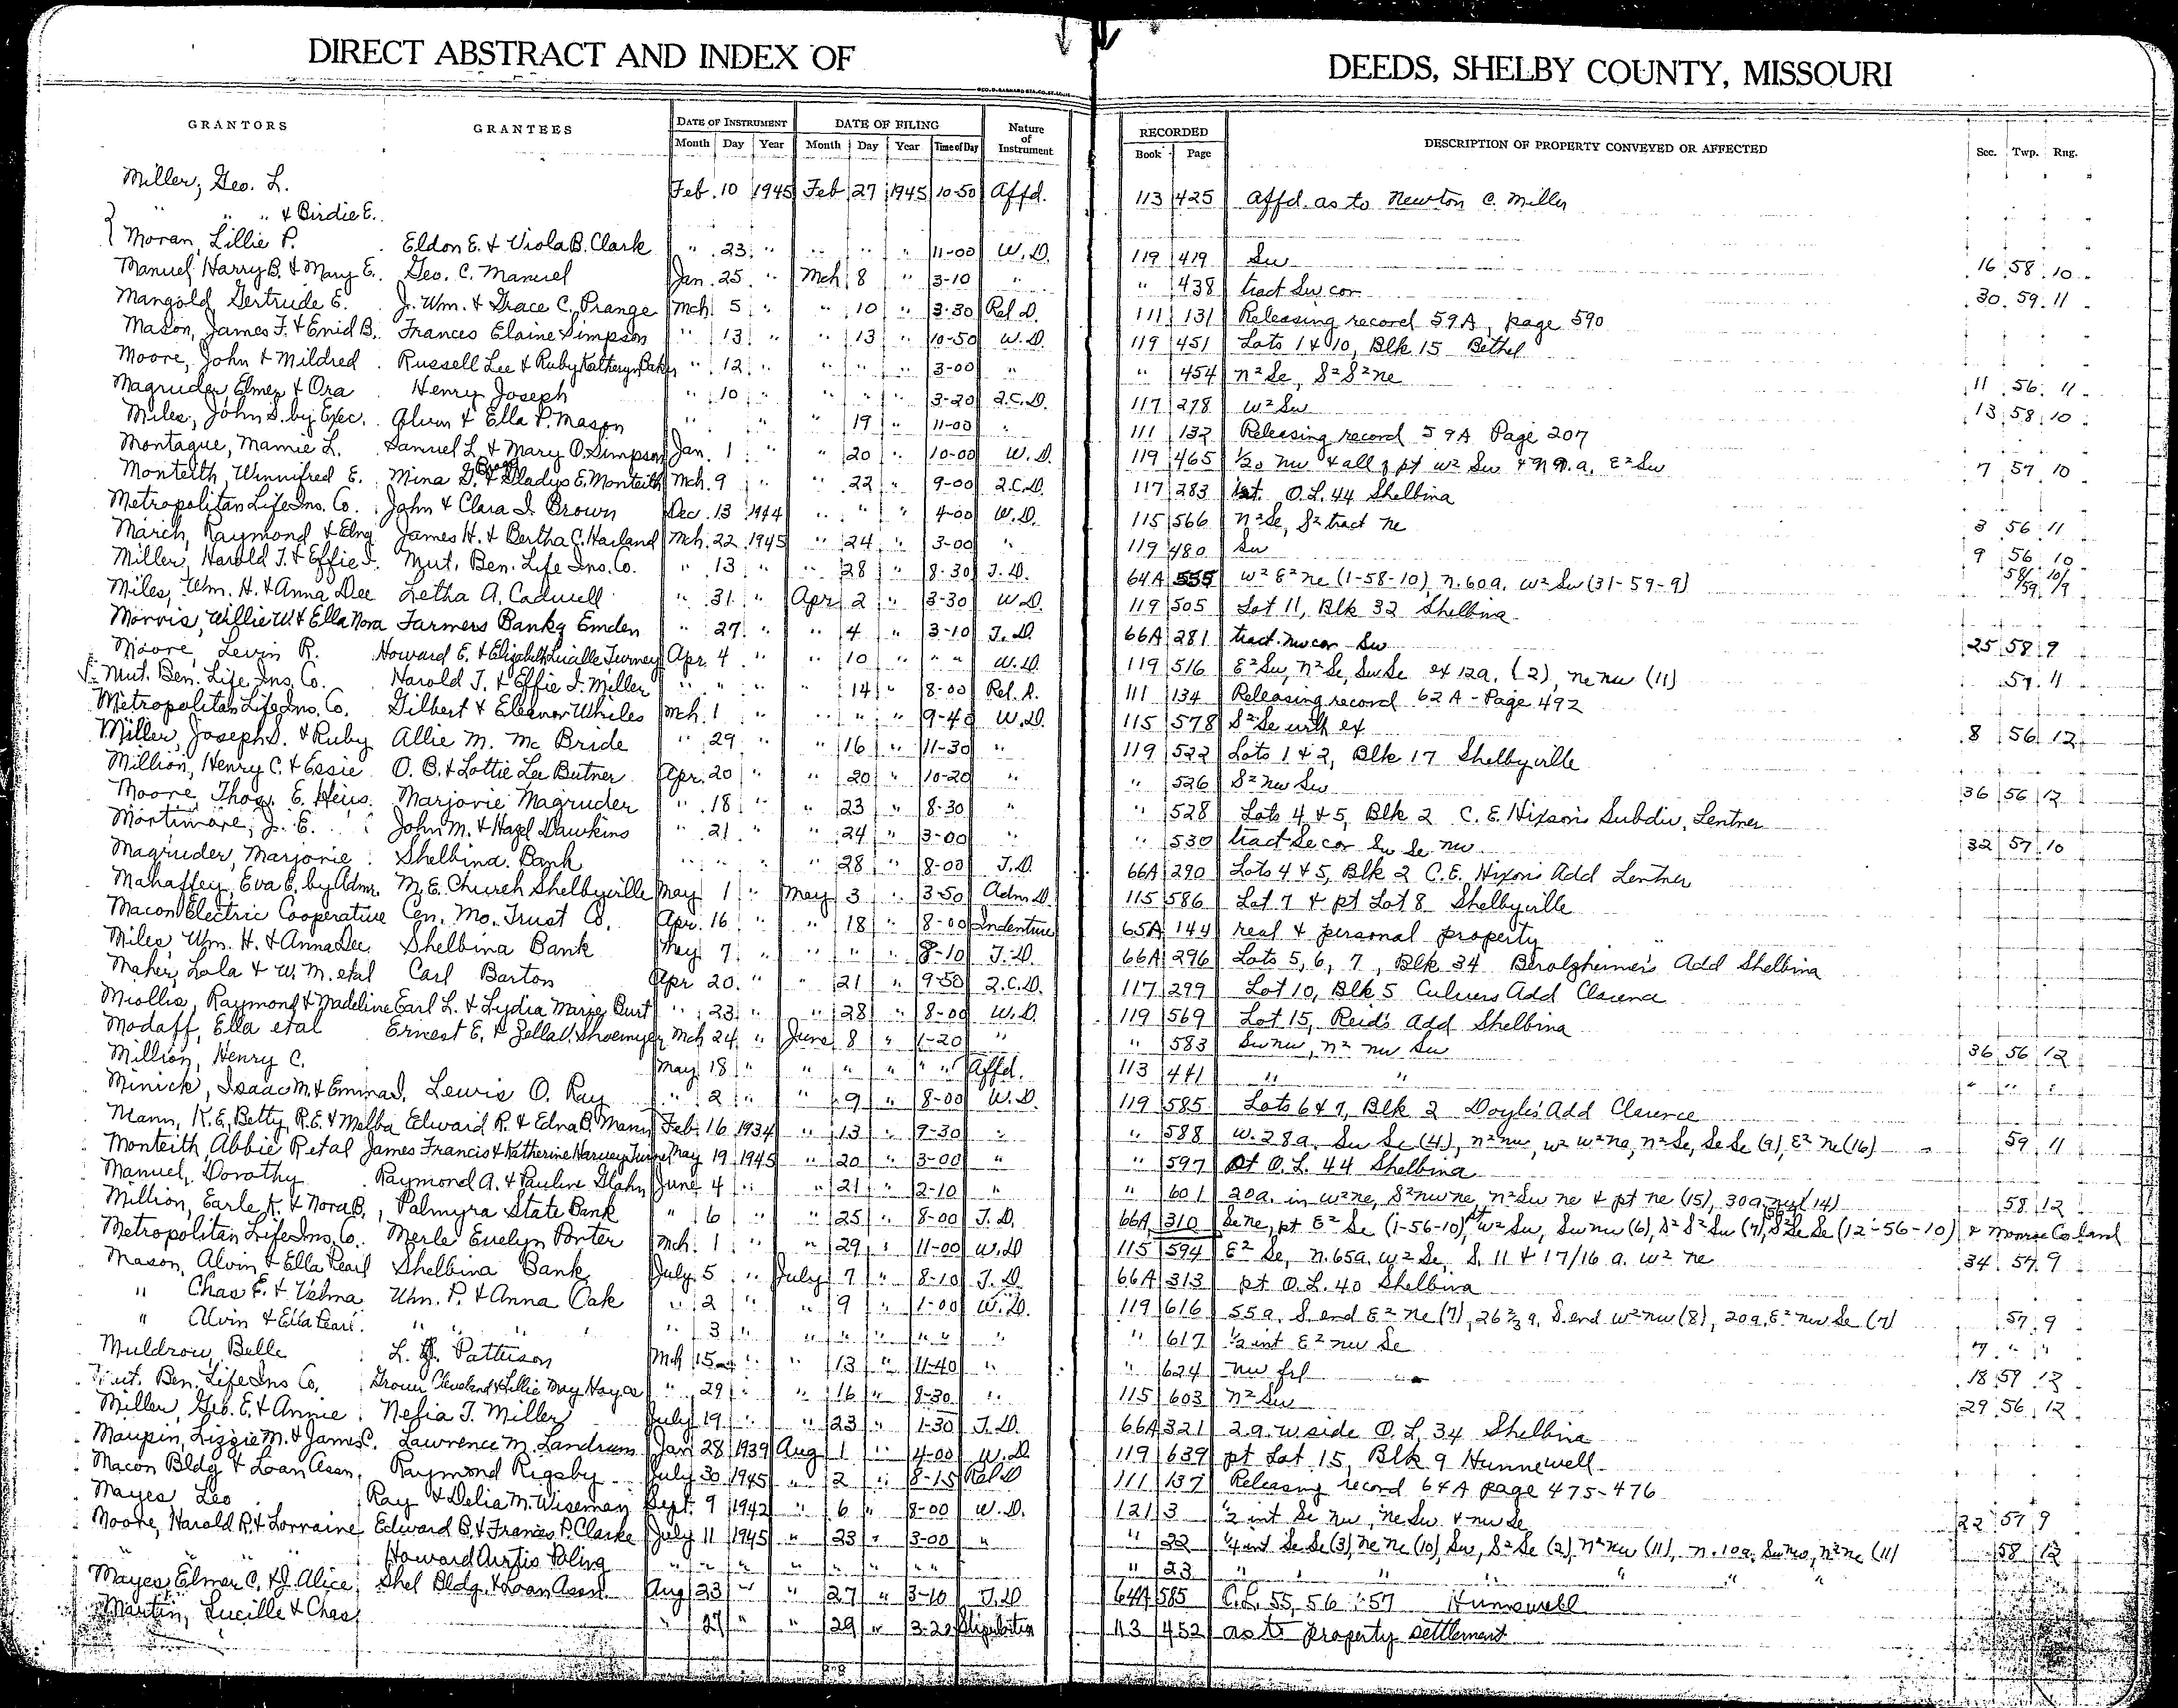 DIRECT ABSTRACT AND INDEX OF DEEDS, SHELBY COUNTY, MISSOURI
GRANTORS GRANTEES DATE OF INSTRUMENT DATE OF FILING Nature of Instrument RECORDED DESCRIPTION OF PROPERTY CONVEYED OR AFFECTED Sec. Twp. Rng.
Month Day Year Month Day Year Time of Day Book Page
Miller, Geo. L. Feb. 10 1945 Feb 27 1945 10-50 Affd. 113 425 Affd. as to Newton C. Miller
" " " & Birdie E.
Moran, Lillie P. Eldon E. & Viola B. Clark " 23 " " " " 11-00 W.D. 119 419 Sw 16 58 10
Manuel, Harry B. & Mary E. Geo. C. Manuel Jan. 25 " Mch 8 " 3-10 " " 438 tract Sw cor 30 59 11
Mangold, Gertrude E. J. Wm. & Grace C. Prange Mch 5 " " 10 " 3-30 Rel D. 111 131 Releasing record 59A, page 590
Mason, James F. & Enid B. Frances Elaine Simpson " 13 " " 13 " 10-50 W.D. 119 451 Lots 1 & 10, Blk 15 Bethel
Moore, John & Mildred Russell Lee & Ruby Katheryn Baker " 12 " " " " 3-00 " " 454 N² Se, S² S² ne 11 56 11
Magruder, Elmer & Ora Henry Joseph " 10 " " " " 3-20 2.C.D. 117 278 W² Sw 13 58 10
Miles, John S. by Exec. Alvin & Ella P. Mason " " " " 19 " 11-00 " 111 132 Releasing record 59A Page 207
Montague, Mamie L. Samuel L. & Mary O. Simpson Jan. 1 " " 20 " 10-00 W.D. 119 465 nw & all pt w² Sw & E² Sw 7 57 10
Monteith, Winnifred E. Mina G. & Gladys E. Monteith Mch. 9 " " 22 " 9-00 2.C.D. 117 283 O.L. 44 Shelbina
Metropolitan Life Ins. Co. John & Clara I. Brown Dec. 13 1944 " " " 4-00 W.D. 115 566 N² Se, S² tract ne 3 56 11
March, Raymond & Edna James H. & Bertha C. Harland Mch. 22 1945 " 24 " 3-00 " 119 480 Sw 9 56 10
Miller, Harold T. & Effie I. Mut. Ben. Life Ins. Co. " 13 " " 28 " 8-30 T.D. 64A 555 W² E² ne (1-58-10), n. 60a. w² Sw (31-59-9) 58/59 10/9
Miles, Wm. H. & Anna Dee Letha A. Cadwell " 31 " Apr 2 " 3-30 W.D. 119 505 Lot 11, Blk 32 Shelbina
Morris, Willie W. & Ella Nora Farmers Bank of Emden " 27 " " 4 " 3-10 T.D. 66A 281 tract nw cor Sw 25 58 9
Moore, Levin R. Howard E. & Elizabeth Lucille Turney Apr. 4 " " 10 " " " W.D. 119 516 E² Sw, N² Se, Sw Se ex 12a. (2), ne nw (11) 57 11
Mut. Ben. Life Ins. Co. Harold T. & Effie I. Miller " " " " 14 " 8-00 Rel. D. 111 134 Releasing record 62A - Page 492
Metropolitan Life Ins. Co. Gilbert & Eleanor Whiles Mch. 1 " " " " 9-40 W.D. 115 578 S² Se with ex 8 56 12
Miller, Joseph S. & Ruby Allie M. McBride " 29 " " 16 " 11-30 " 119 522 Lots 1 & 2, Blk 17 Shelbyville
Million, Henry C. & Essie O. B. & Lottie Lee Butner Apr. 20 " " 20 " 10-20 " " 526 S² nw Sw 36 56 12
Moore, Thos. E. Heirs Marjorie Magruder " 18 " " 23 " 8-30 " " 528 Lots 4 & 5, Blk 2 C. E. Hixson's Subdiv, Lentner
Mortimore, J. E. John M. & Hazel Dawkins " 21 " " 24 " 3-00 " " 530 tract Se cor Sw Se nw 32 57 10
Magruder, Marjorie Shelbina Bank " " " " 28 " 8-00 T.D. 66A 290 Lots 4 & 5, Blk 2 C.E. Hixson's Add Lentner
Mahaffey, Eva E. by Admr. M.E. Church Shelbyville May 1 " May 3 " 3-50 Adm D. 115 586 Lot 7 & pt Lot 8 Shelbyville
Macon Electric Cooperative Cen. Mo. Trust Co. Apr. 16 " " 18 " 8-00 Indenture 65A 144 real & personal property
Miles, Wm. H. & Anna Dee Shelbina Bank May 7 " " " " 8-10 T.D. 66A 296 Lots 5, 6, 7, Blk 34 Berolzheimer's Add Shelbina
Maher, Lola & W. M. etal Carl Barton Apr 20 " " 21 " 9-50 2.C.D. 117 299 Lot 10, Blk 5 Culvers Add Clarence
Miollis, Raymond & Madeline Earl L. & Lydia Marie Burt " 23 " " 28 " 8-00 W.D. 119 569 Lot 15, Reid's Add Shelbina
Modaff, Ella etal Ernest E. & Zella V. Shoemyer Mch 24 " June 8 " 1-20 " " 583 Sw nw, N² nw Sw 36 56 12
Million, Henry C. May 18 " " " " " " Affd. 113 441 " " " " "
Minick, Isaac M. & Emma S. Lewis O. Ray " 2 " " 9 " 8-00 W.D. 119 585 Lots 6 & 7, Blk 2 Doyle's Add Clarence
Mann, K.E, Betty, R.E. & Melba Edward R. & Edna B. Mann Feb. 16 1934 " 13 " 9-30 " " 588 W. 28a. Sw Se (4), n² nw, w² w² ne, n² Se, Se Se (9), E² ne (16) 59 11
Monteith, Abbie R etal James Francis & Katherine Harvey Turner May 19 1945 " 20 " 3-00 " " 597 pt O.L. 44 Shelbina
Manuel, Dorothy Raymond A. & Pauline Glahn June 4 " " 21 " 2-10 " " 601 20a. in w² ne, S² nw ne, n² Sw ne & pt ne (15), 30a. nw (14) 58 12
Million, Earle K. & Nora B. Palmyra State Bank " 6 " " 25 " 8-00 T.D. 66A 310 Se ne, pt E² Se (1-56-10) pt w² Sw, Sw nw (6), S² S² Sw (7), S² Se Se (12-56-10) & Monroe Co. land
Metropolitan Life Ins. Co. Merle Evelyn Porter Mch. 1 " " 29 " 11-00 W.D 115 594 E² Se, n. 65a. w² Se, S. 11 & 17/16 a. w² ne 34 57 9
Mason, Alvin & Ella Pearl Shelbina Bank July 5 " July 7 " 8-10 T.D. 66A 313 pt O.L. 40 Shelbina
" Chas E. & Velma Wm. P. & Anna Oak " 2 " " 9 " 1-00 W.D. 119 616 55a. S. end E² ne (7), 26⅔ a. S. end w² nw (8), 20a. E² nw Se (7) 57 9
" Alvin & Ella Pearl " " " " " 3 " " " " " " " " 617 ½ int E² nw Se 7 " "
Muldrow, Belle L. Pattison Mch 15 " " 13 " 11-40 " " 624 nw frl 18 59 12
Mut. Ben. Life Ins Co. Grover Cleveland & Lillie May Hayes " 29 " " 16 " 8-30 " 115 603 N² Sw 29 56 12
Miller, Geo. E. & Annie Nefia T. Miller July 19 " " 23 " 1-30 T.D. 66A 321 2a. w side O.L. 34 Shelbina
Maupin, Lizzie M. & James C. Lawrence M. Landrum Jan 28 1939 Aug 1 " 4-00 W.D 119 639 pt Lot 15, Blk 9 Hunnewell
Macon Bldg & Loan Assn. Raymond Rigsby July 30 1945 " 2 " 8-15 Rel D 111 137 Releasing record 64A page 475-476
Mayes, Leo Ray & Delia M. Wiseman Sept. 9 1942 " 6 " 8-00 W.D. 121 3 ½ int Se nw, ne Sw & nw Se 22 57 9
Moore, Harold R. & Lorraine Edward B. & Frances P. Clarke July 11 1945 " 23 " 3-00 " " 22 ¼ int Se Se (3), ne ne (10), Sw, S² Se (2), N² nw (11), n. 10a. Sw nw, n² ne (11) 58 12
" " " Howard Curtis Poling " " " " " " " " " 23 " " " " " "
Mayes, Elmer C. & J. Alice Shel Bldg. & Loan Assn. Aug 23 " " 27 " 3-10 T.D 64A 585 O.L. 55, 56 & 57 Hunnewell
Martin, Lucille & Chas. " 27 " " 29 " 3-20 Stipulation 113 452 as to property settlement